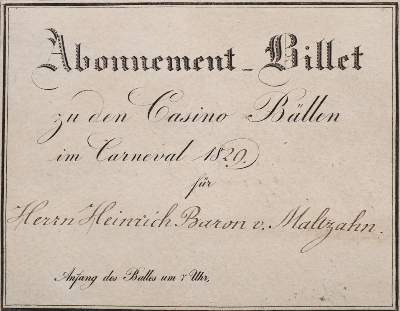 Abonnement - Billet
zu den Casino Bällen
im Carneval 1829.
für
Herrn Heinrich Baron v. Maltzahn.
Anfang des Balles um 7 Uhr.